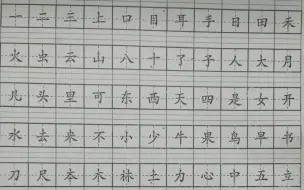 一二三上口目耳手日田禾
火虫云山八十了子人大月
儿头里可东西天四是女开
水去来不小少牛果鸟早书
刀尺本木林土力心中五立